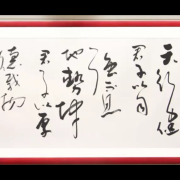 天行健
君子以自
强不息
地勢坤
君子以厚
德載物